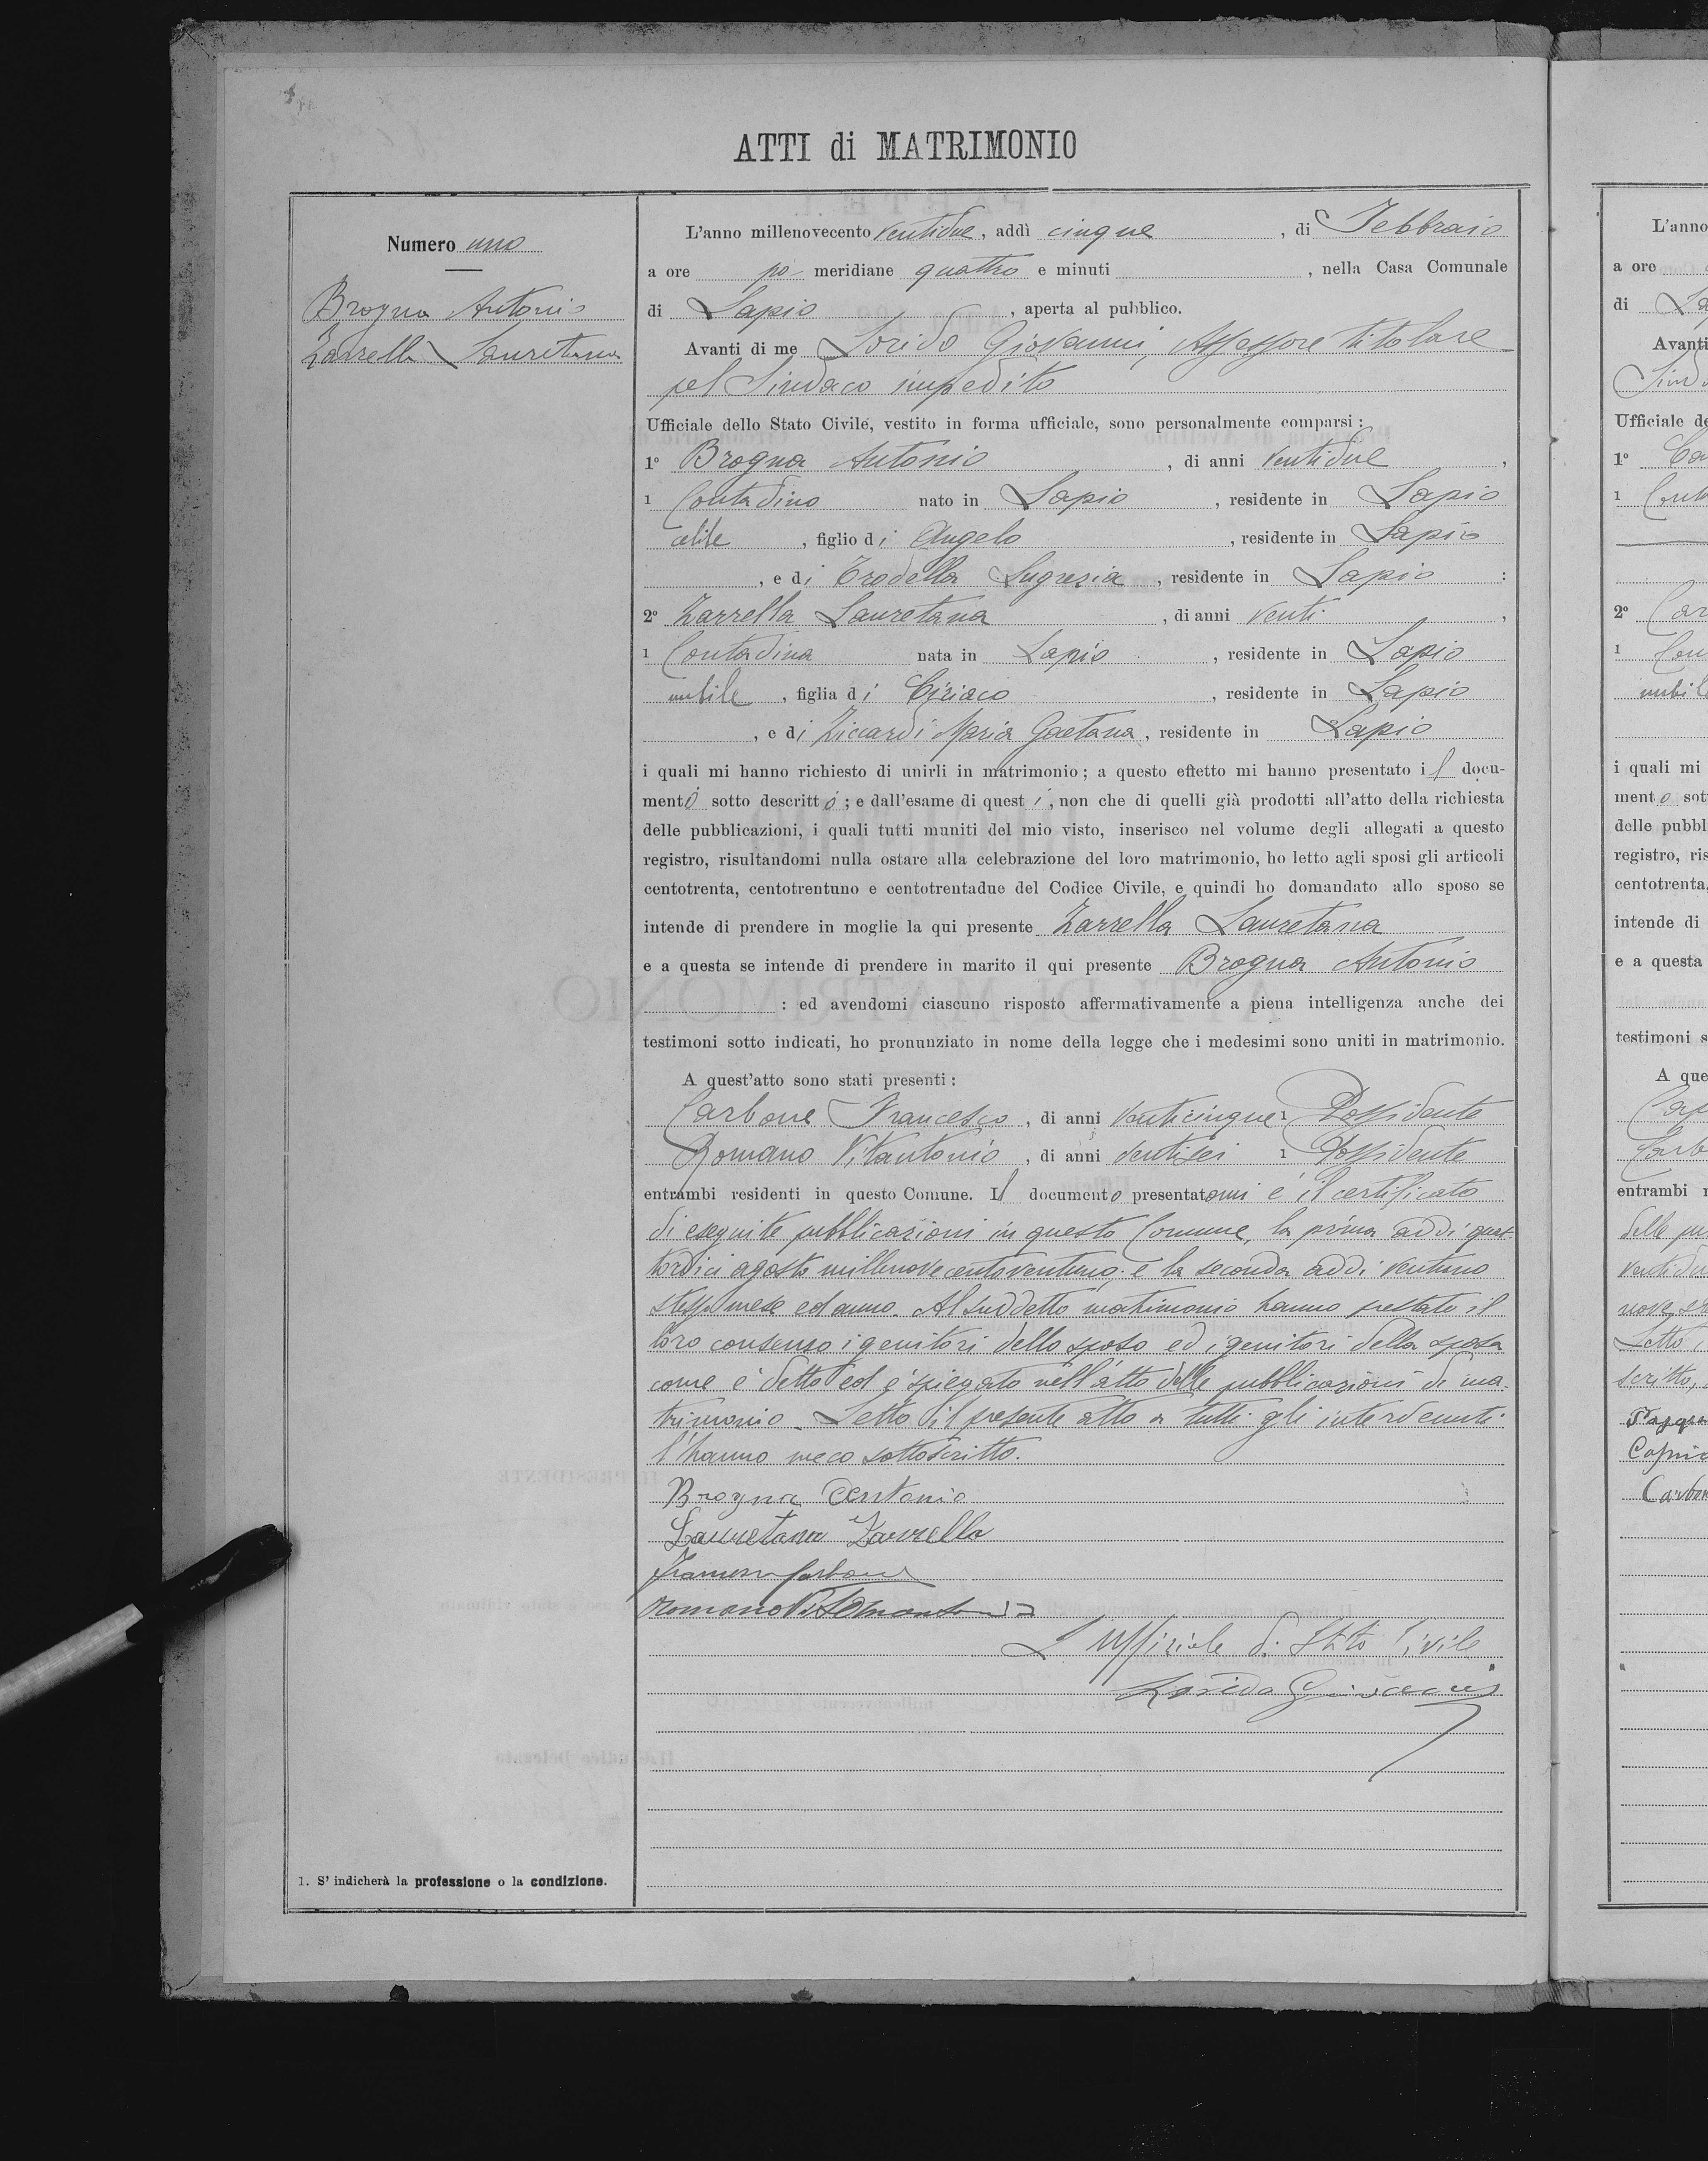 ATTI di MATRIMONIO
Numero uno
Brogna Antonio
Zarrella Lauretana
L'anno millenovecento ventidue, addì cinque, di Febbraio
a ore po meridiane quattro e minuti , nella Casa Comunale
di Lapio, aperta al pubblico.
Avanti di me Lorido Giovanni, Assessore titolare
pel Sindaco impedito
Ufficiale dello Stato Civile, vestito in forma ufficiale, sono personalmente comparsi:
1° Brogna Antonio, di anni ventidue,
1 Contadino nato in Lapio, residente in Lapio
celibe, figlio di Angelo, residente in Lapio
, e di Trodella Lugrezia, residente in Lapio:
2° Zarrella Lauretana, di anni venti,
1 Contadina nata in Lapio, residente in Lapio
nubile, figlia di Ciriaco, residente in Lapio
, e di Ziccardi Maria Gaetana, residente in Lapio
i quali mi hanno richiesto di unirli in matrimonio; a questo effetto mi hanno presentato il docu-
mento sotto descritto; e dall'esame di questi, non che di quelli già prodotti all'atto della richiesta
delle pubblicazioni, i quali tutti muniti del mio visto, inserisco nel volume degli allegati a questo
registro, risultandomi nulla ostare alla celebrazione del loro matrimonio, ho letto agli sposi gli articoli
centotrenta, centotrentuno e centotrentadue del Codice Civile, e quindi ho domandato allo sposo se
intende di prendere in moglie la qui presente Zarrella Lauretana
e a questa se intende di prendere in marito il qui presente Brogna Antonio
: ed avendomi ciascuno risposto affermativamente a piena intelligenza anche dei
testimoni sotto indicati, ho pronunziato in nome della legge che i medesimi sono uniti in matrimonio.
A quest'atto sono stati presenti:
Carbone Francesco, di anni venticinque 1 Possidente
Romano Vitantonio, di anni ventisei 1 Possidente
entrambi residenti in questo Comune. Il documento presentatomi è il certificato
di eseguite pubblicazioni in questo Comune, la prima addì quat-
tordici agosto millenovecentoventuno e la seconda addì ventuno
stesso mese ed anno. Al suddetto matrimonio hanno prestato il
loro consenso i genitori dello sposo ed i genitori della sposa
come è detto ed è spiegato nell'atto delle pubblicazioni di ma-
trimonio. Letto il presente atto a tutti gli intervenuti
l'hanno meco sottoscritto.
Brogna Antonio
Lauretana Zarrella
Francesco Carbone
Romano
L'Uffiziale di Stato Civile
Lorido Giovanni
1. S'indicherà la professione o la condizione.
L'anno
a ore
di
Avanti
Ufficiale de
1°
1
2°
1
nubile
i quali mi
mento sot
delle pubbl
registro, ris
centotrenta,
intende di
e a questa
testimoni s
A que
entrambi r
Letto
scritto,